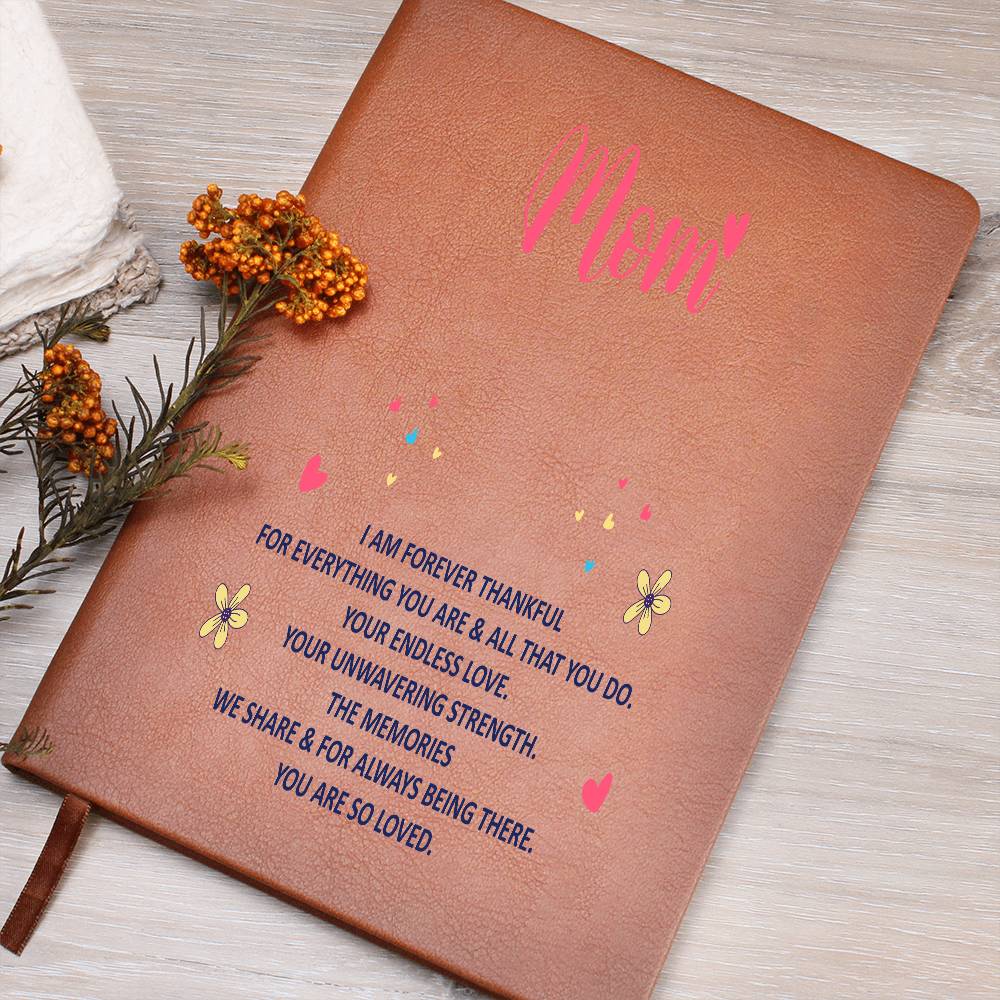 Mom
I AM FOREVER THANKFUL
FOR EVERYTHING YOU ARE & ALL THAT YOU DO.
YOUR ENDLESS LOVE.
YOUR UNWAVERING STRENGTH.
THE MEMORIES
WE SHARE & FOR ALWAYS BEING THERE.
YOU ARE SO LOVED.